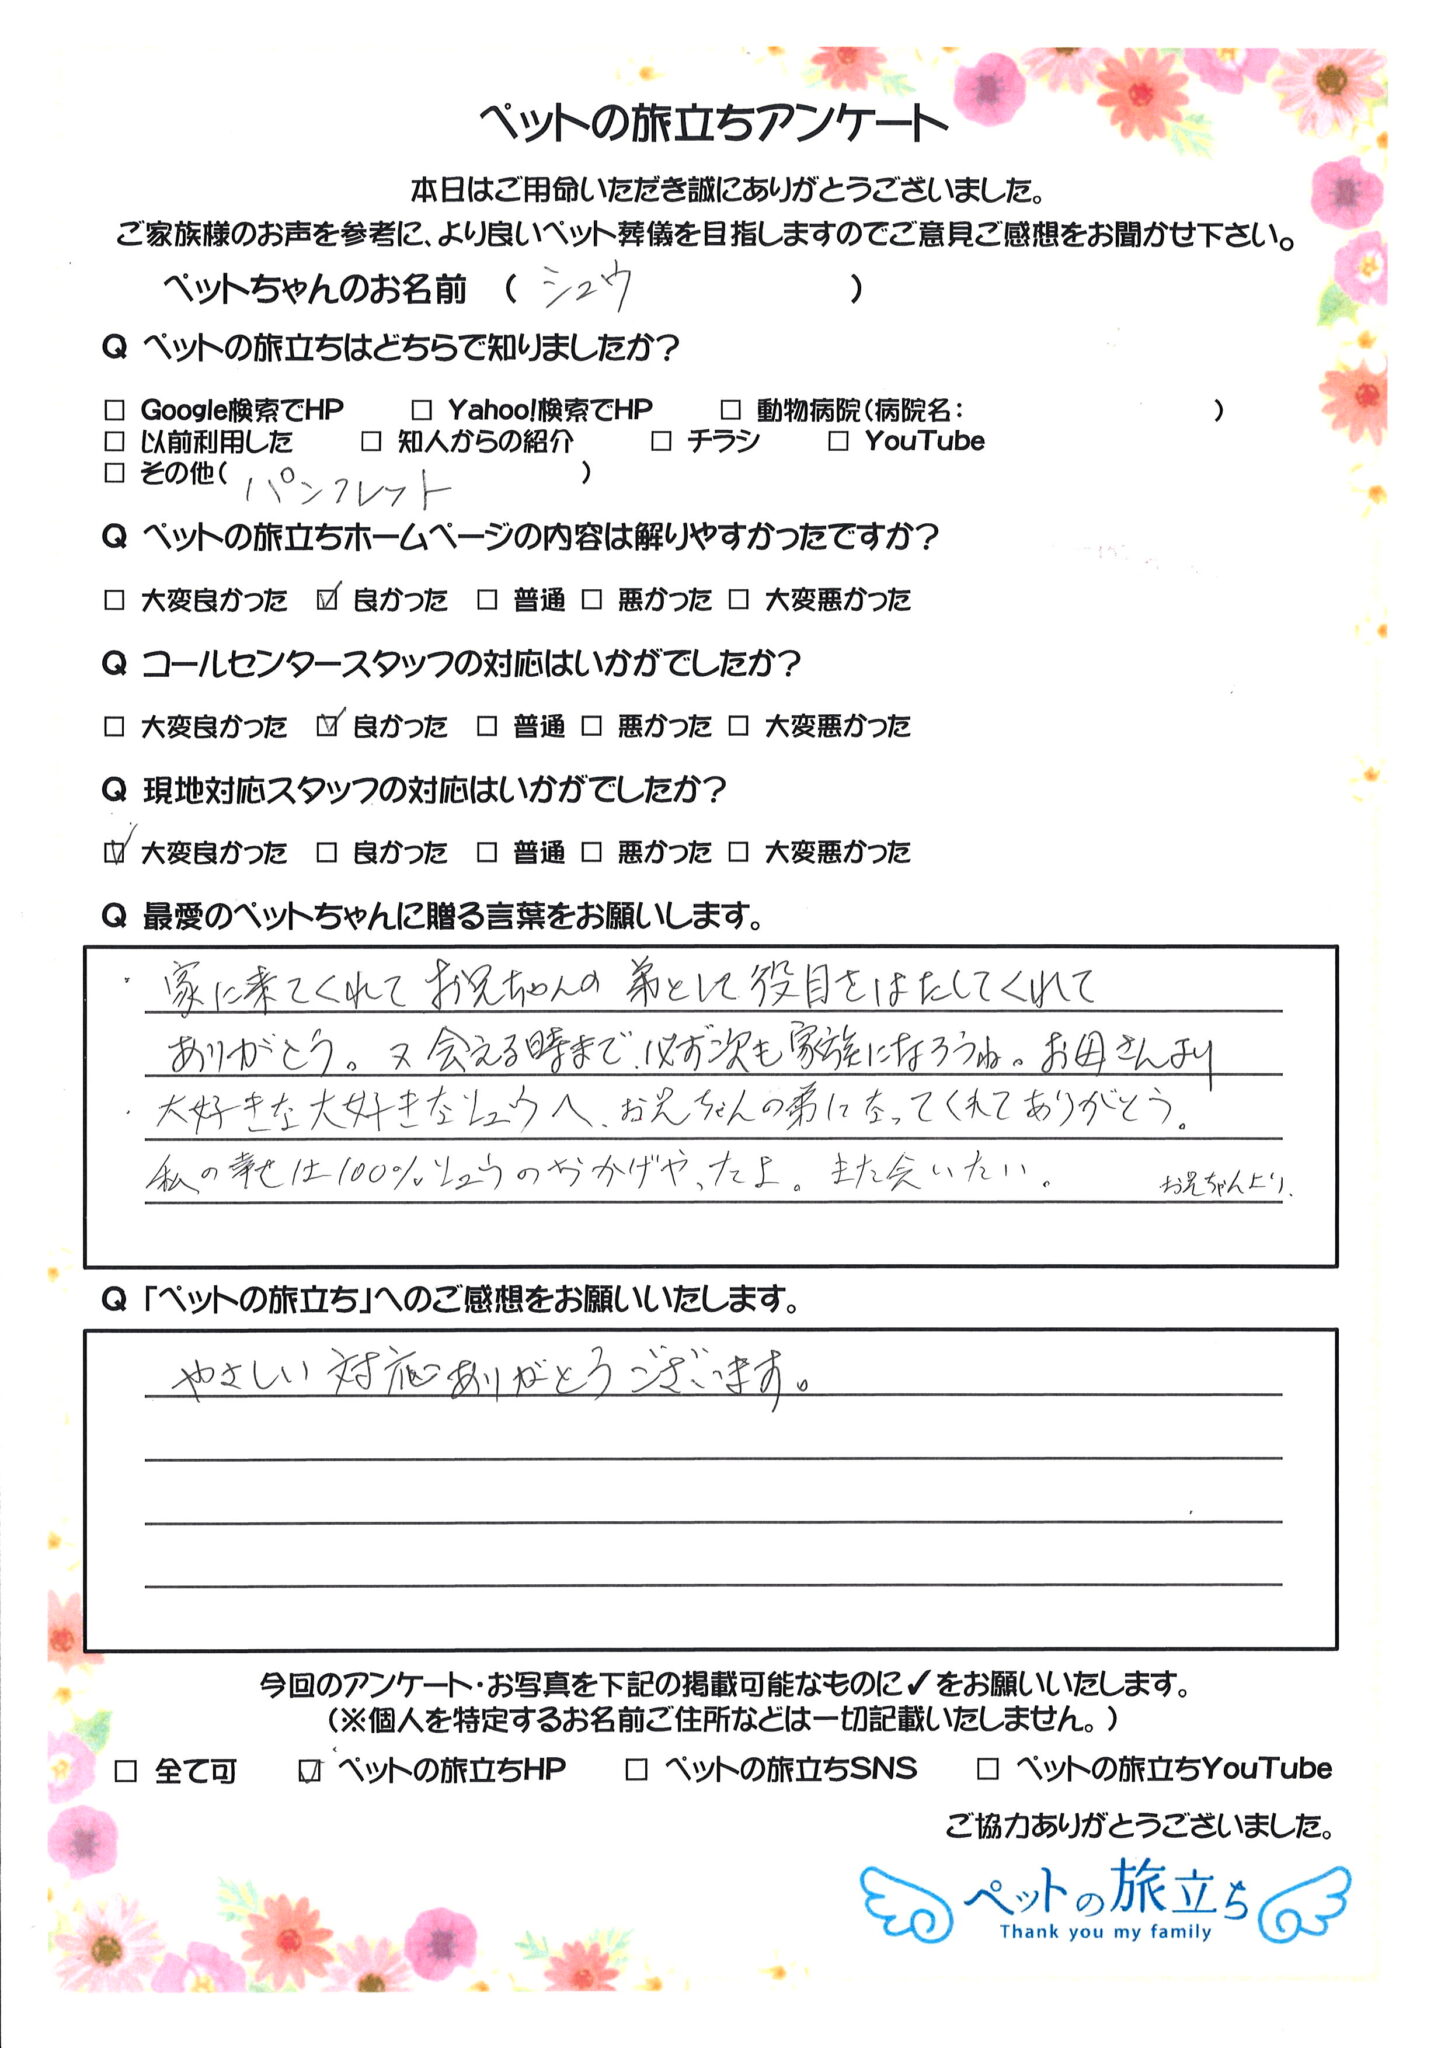 ペットの旅立ちアンケート
本日はご用命いただき誠にありがとうございました。
ご家族様のお声を参考に、より良いペット葬儀を目指しますのでご意見ご感想をお聞かせ下さい。
ペットちゃんのお名前 （ シュウ ）
Q ペットの旅立ちはどちらで知りましたか？
□ Google検索でHP □ Yahoo!検索でHP □ 動物病院（病院名： ）
□ 以前利用した □ 知人からの紹介 □ チラシ □ YouTube
□ その他（ パンフレット ）
Q ペットの旅立ちホームページの内容は解りやすかったですか？
□ 大変良かった ☑ 良かった □ 普通 □ 悪かった □ 大変悪かった
Q コールセンタースタッフの対応はいかがでしたか？
□ 大変良かった ☑ 良かった □ 普通 □ 悪かった □ 大変悪かった
Q 現地対応スタッフの対応はいかがでしたか？
☑ 大変良かった □ 良かった □ 普通 □ 悪かった □ 大変悪かった
Q 最愛のペットちゃんに贈る言葉をお願いします。
・家に来てくれてお兄ちゃんの弟として役目をはたしてくれて
ありがとう。又会える時まで、必ず次も家族になろうね。お母さんより
・大好きな大好きなシュウへ、お兄ちゃんの弟になってくれてありがとう。
私の幸せは100%シュウのおかげやったよ。また会いたい。 お兄ちゃんより、
Q 「ペットの旅立ち」へのご感想をお願いいたします。
やさしい対応ありがとうございます。
今回のアンケート・お写真を下記の掲載可能なものに✓をお願いいたします。
（※個人を特定するお名前ご住所などは一切記載いたしません。）
□ 全て可 ☑ ペットの旅立ちHP □ ペットの旅立ちSNS □ ペットの旅立ちYouTube
ご協力ありがとうございました。
ペットの旅立ち
Thank you my family